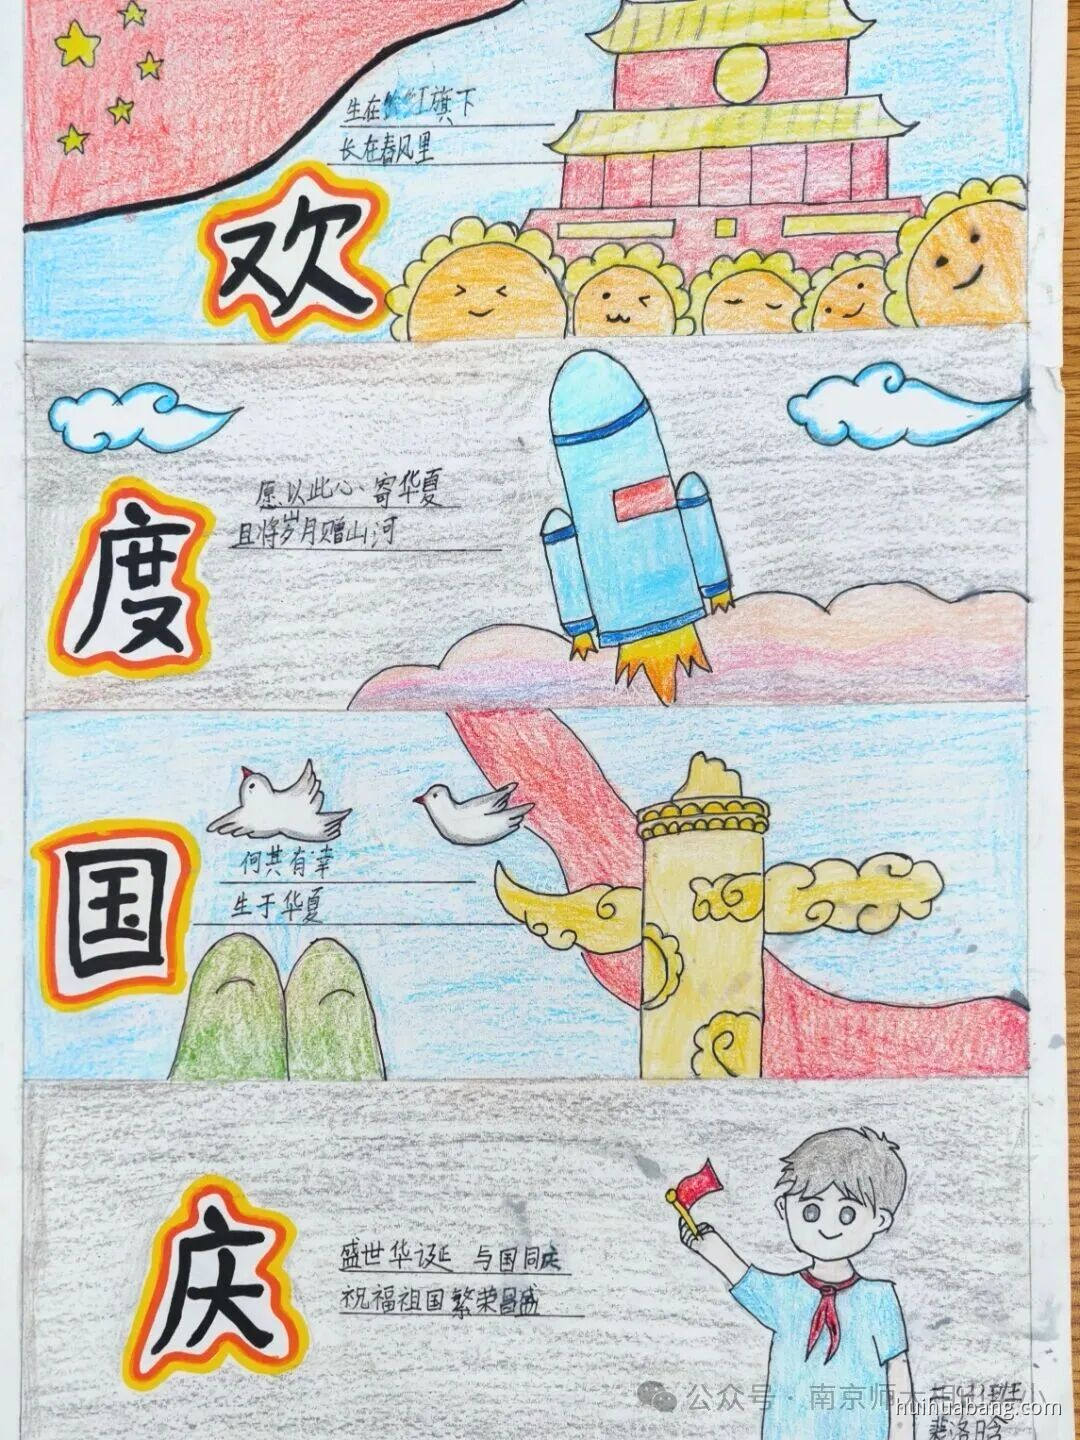 欢
生在红旗下
长在春风里
度
愿以此心寄华夏
且将岁月赠山河
国
何其有幸
生于华夏
庆
盛世华诞 与国同庆
祝福祖国繁荣昌盛
公众号·南京师大
huihuabang.com
裴洛晗